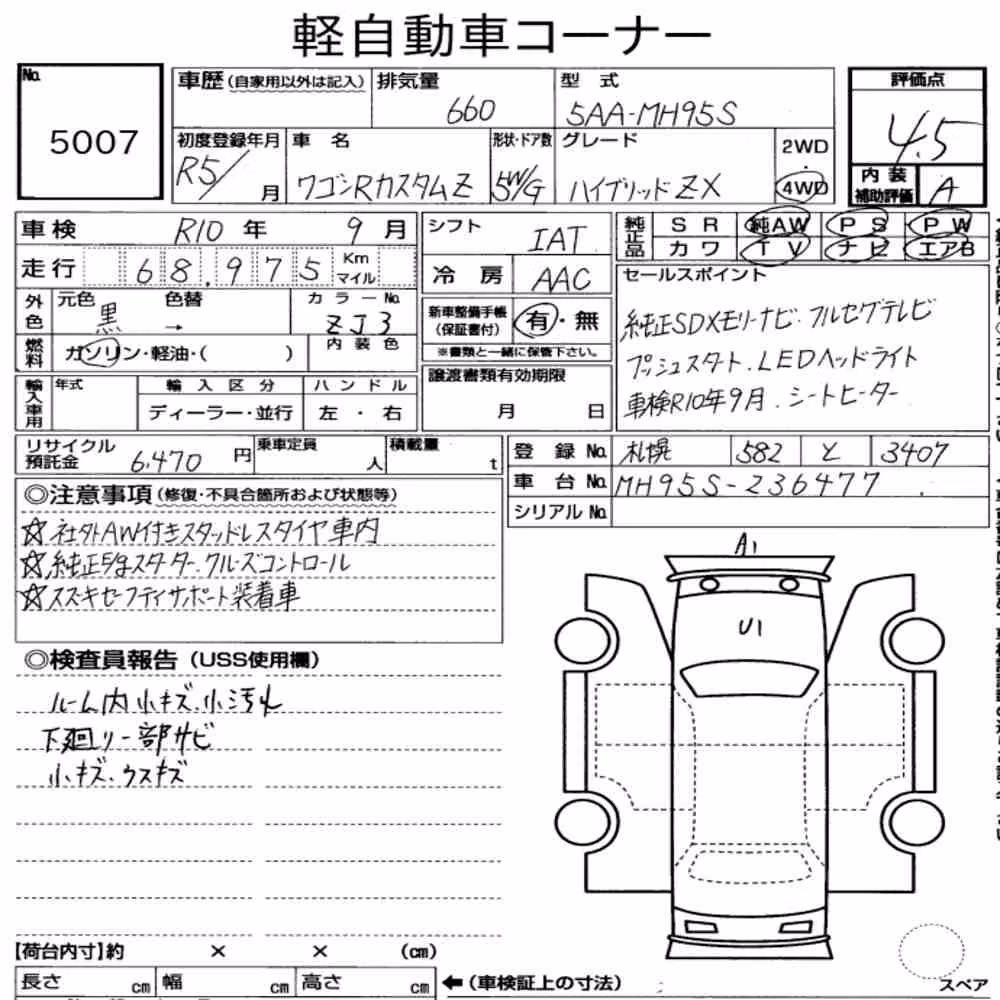 軽自動車コーナー
No.
5007
車歴(自家用以外は記入)
排気量
660
型 式
5AA-MH95S
評価点
4.5
初度登録年月
R5/ 月
車 名
ワゴンRカスタムZ
形状・ドア数
5W/G
グレード
ハイブリッドZX
2WD
・
4WD
内 装
補助評価
A
車検 R10 年 9 月
シフト
IAT
純正品
S R 純AW P S P W
カ ワ T V ナビ エアB
走行 68,975 Km
マイル
冷 房
AAC
セールスポイント
外色
元色
黒
色替
→
カラーNo.
ZJ3
新車整備手帳
(保証書付)
有・無
※書類と一緒に保管下さい。
純正SDXモリーナビ.フルセグテレビ
プッシュスタート.LEDヘッドライト
車検R10年9月.シートヒーター
燃料
ガソリン・軽油・( )
内 装 色
譲渡書類有効期限
月 日
輸入車用
年式
輸 入 区 分
ディーラー・並行
ハ ン ド ル
左 ・ 右
リサイクル
預託金
6,470 円
乗車定員
人
積載量
t
登 録 No. 札幌 582 と 3407
車 台 No. MH95S-236477
シリアル No.
◎注意事項(修復・不具合箇所および状態等)
☆社外AW付きスタッドレスタイヤ車内
☆純正Eg.スターター.クルーズコントロール
☆スズキセーフティサポート装着車
◎検査員報告(USS使用欄)
ルーム内小キズ.小汚れ
下廻り一部サビ
小キズ.ウスキズ
A1
U1
【荷台内寸】約 × × (cm)
長さ cm 幅 cm 高さ cm
←(車検証上の寸法)
スペア